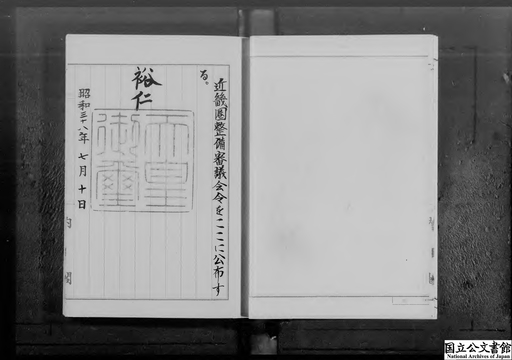 近畿圏整備審議会令をここに公布す
る。
裕仁
天皇
御璽
昭和三十八年七月十日
内閣
国立公文書館
National Archives of Japan